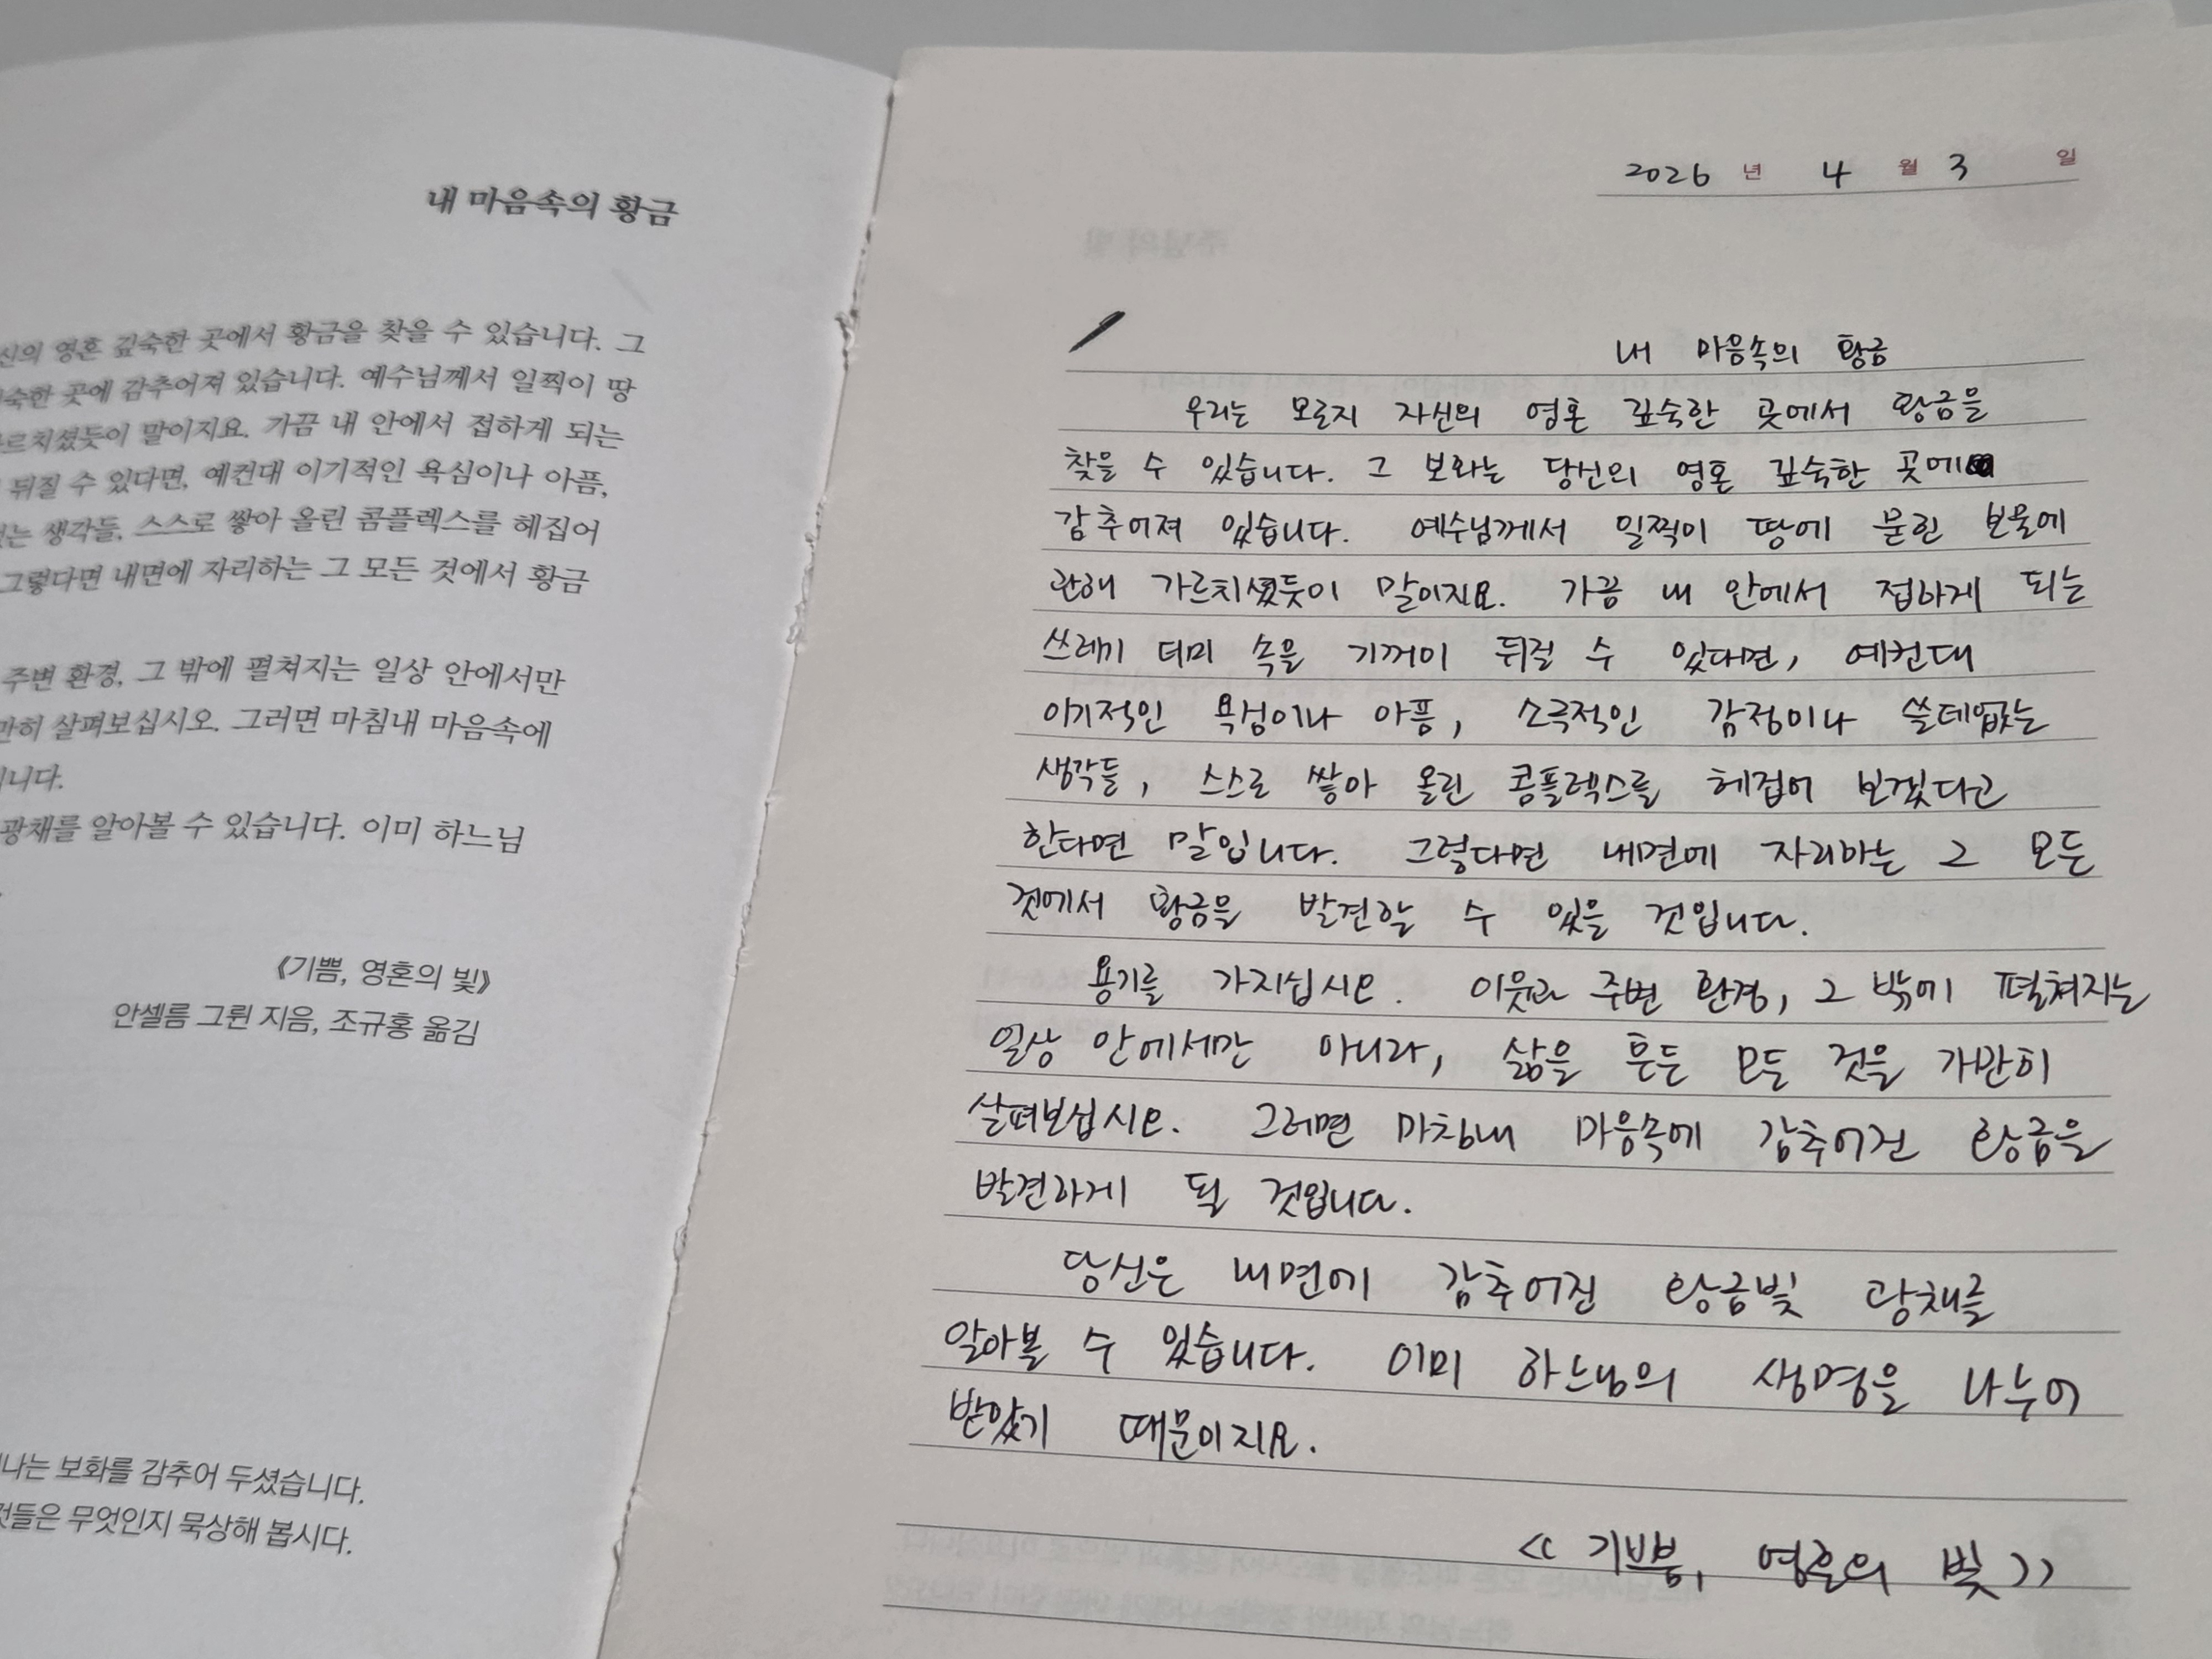 내 마음속의 황금
신의 영혼 깊숙한 곳에서 황금을 찾을 수 있습니다. 그
숙한 곳에 감추어져 있습니다. 예수님께서 일찍이 땅
르치셨듯이 말이지요. 가끔 내 안에서 접하게 되는
뒤질 수 있다면, 예컨대 이기적인 욕심이나 아픔,
는 생각들, 스스로 쌓아 올린 콤플렉스를 헤집어
그렇다면 내면에 자리하는 그 모든 것에서 황금
주변 환경, 그 밖에 펼쳐지는 일상 안에서만
만히 살펴보십시오. 그러면 마침내 마음속에
니다.
광채를 알아볼 수 있습니다. 이미 하느님
《기쁨, 영혼의 빛》
안셀름 그륀 지음, 조규홍 옮김
나는 보화를 감추어 두셨습니다.
것들은 무엇인지 묵상해 봅시다.
2026 년 4 월 3 일
내 마음속의 황금
우리는 모름지 자신의 영혼 깊숙한 곳에서 황금을
찾을 수 있습니다. 그 보화는 당신의 영혼 깊숙한 곳에
감추어져 있습니다. 예수님께서 일찍이 땅에 묻힌 보물에
관해 가르치셨듯이 말이지요. 가끔 내 안에서 접하게 되는
쓰레기 더미 속을 기꺼이 뒤질 수 있다면, 예컨대
이기적인 욕심이나 아픔, 소극적인 감정이나 쓸데없는
생각들, 스스로 쌓아 올린 콤플렉스를 헤집어 보겠다고
한다면 말입니다. 그렇다면 내면에 자리하는 그 모든
것에서 황금을 발견할 수 있을 것입니다.
용기를 가지십시오. 이웃과 주변 환경, 그 밖에 펼쳐지는
일상 안에서만 아니라, 삶을 흔든 모든 것을 가만히
살펴보십시오. 그러면 마침내 마음속에 감추어진 황금을
발견하게 될 것입니다.
당신은 내면에 감추어진 황금빛 광채를
알아볼 수 있습니다. 이미 하느님의 생명을 나누어
받았기 때문이지요.
<< 기쁨, 영혼의 빛 >>